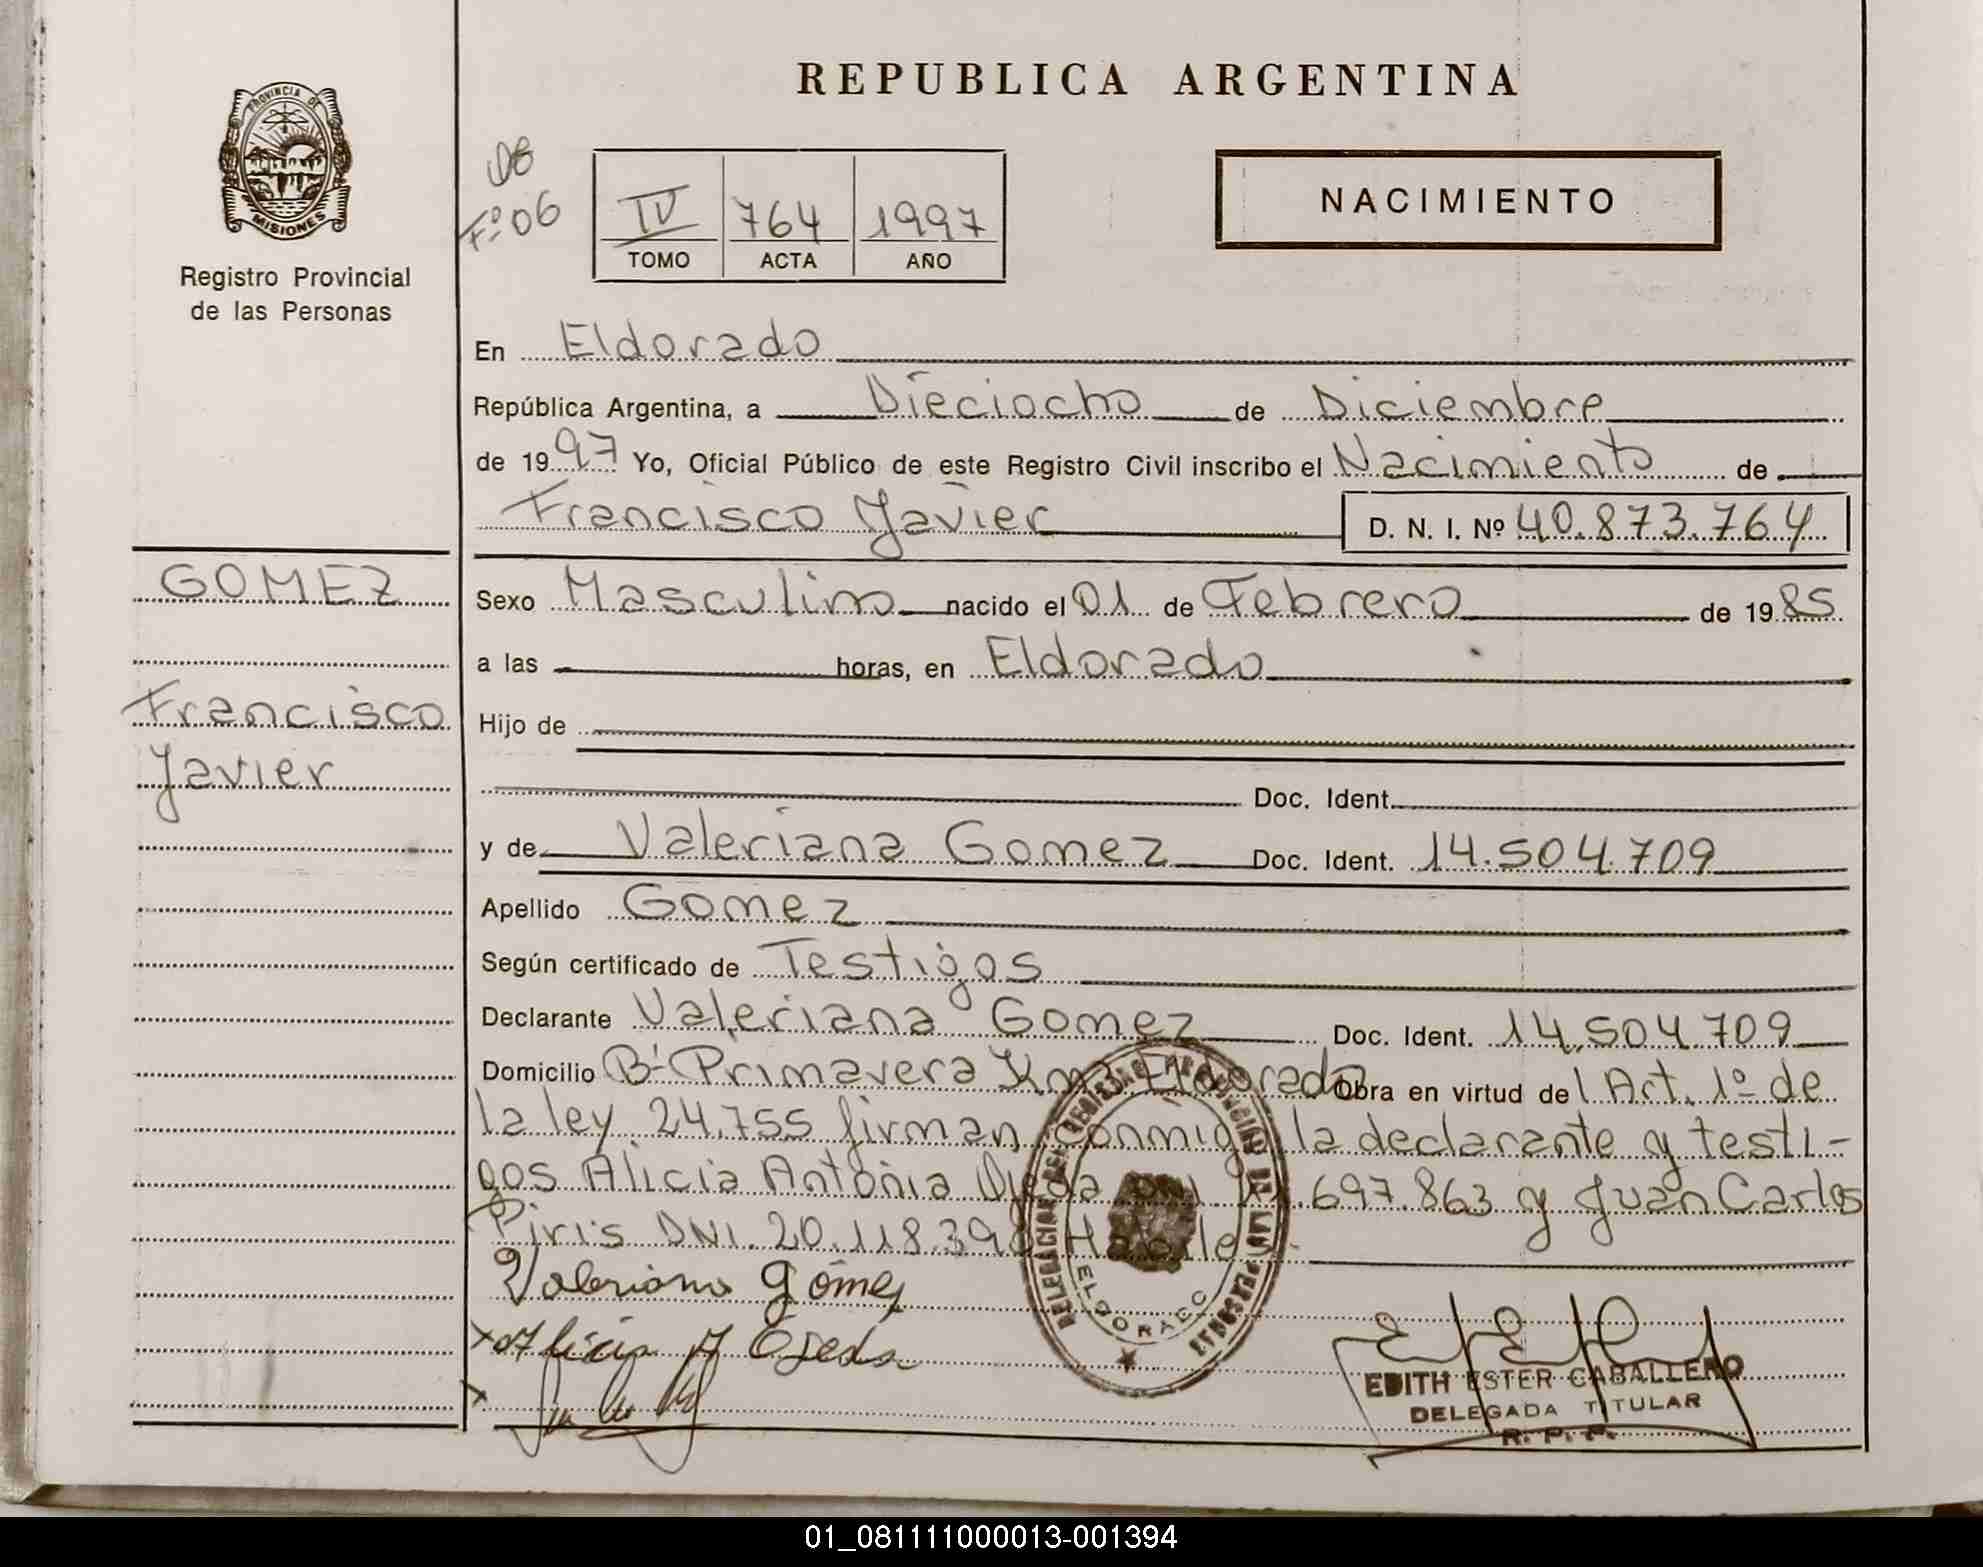 REPUBLICA ARGENTINA
PROVINCIA DE
MISIONES
Registro Provincial
de las Personas
08
Fº 06
IV 764 1997
TOMO ACTA AÑO
NACIMIENTO
En Eldorado
República Argentina, a Dieciocho de Diciembre
de 1997 Yo, Oficial Público de este Registro Civil inscribo el Nacimiento de
Francisco Javier D. N. I. Nº 40.873.764
GOMEZ
Francisco
Javier
Sexo Masculino nacido el 01 de Febrero de 1985
a las horas, en Eldorado
Hijo de
Doc. Ident.
y de Valeriana Gomez Doc. Ident. 14.504.709
Apellido Gomez
Según certificado de Testigos
Declarante Valeriana Gomez Doc. Ident. 14.504.709
Domicilio Bº Primavera Km Eldorado Obra en virtud del Art. 1º de
la ley 24.755 firman conmigo la declarante y testi-
gos Alicia Antonia Ojeda DNI .697.863 y Juan Carlos
Piris DNI. 20.118.398
Valeriana Gómez
x Alicia A Ojeda
x
DELEGACION DEL REGISTRO PROVINCIAL DE LAS PERSONAS
ELDORADO
EDITH ESTER CABALLERO
DELEGADA TITULAR
R. P. P.
01_081111000013-001394